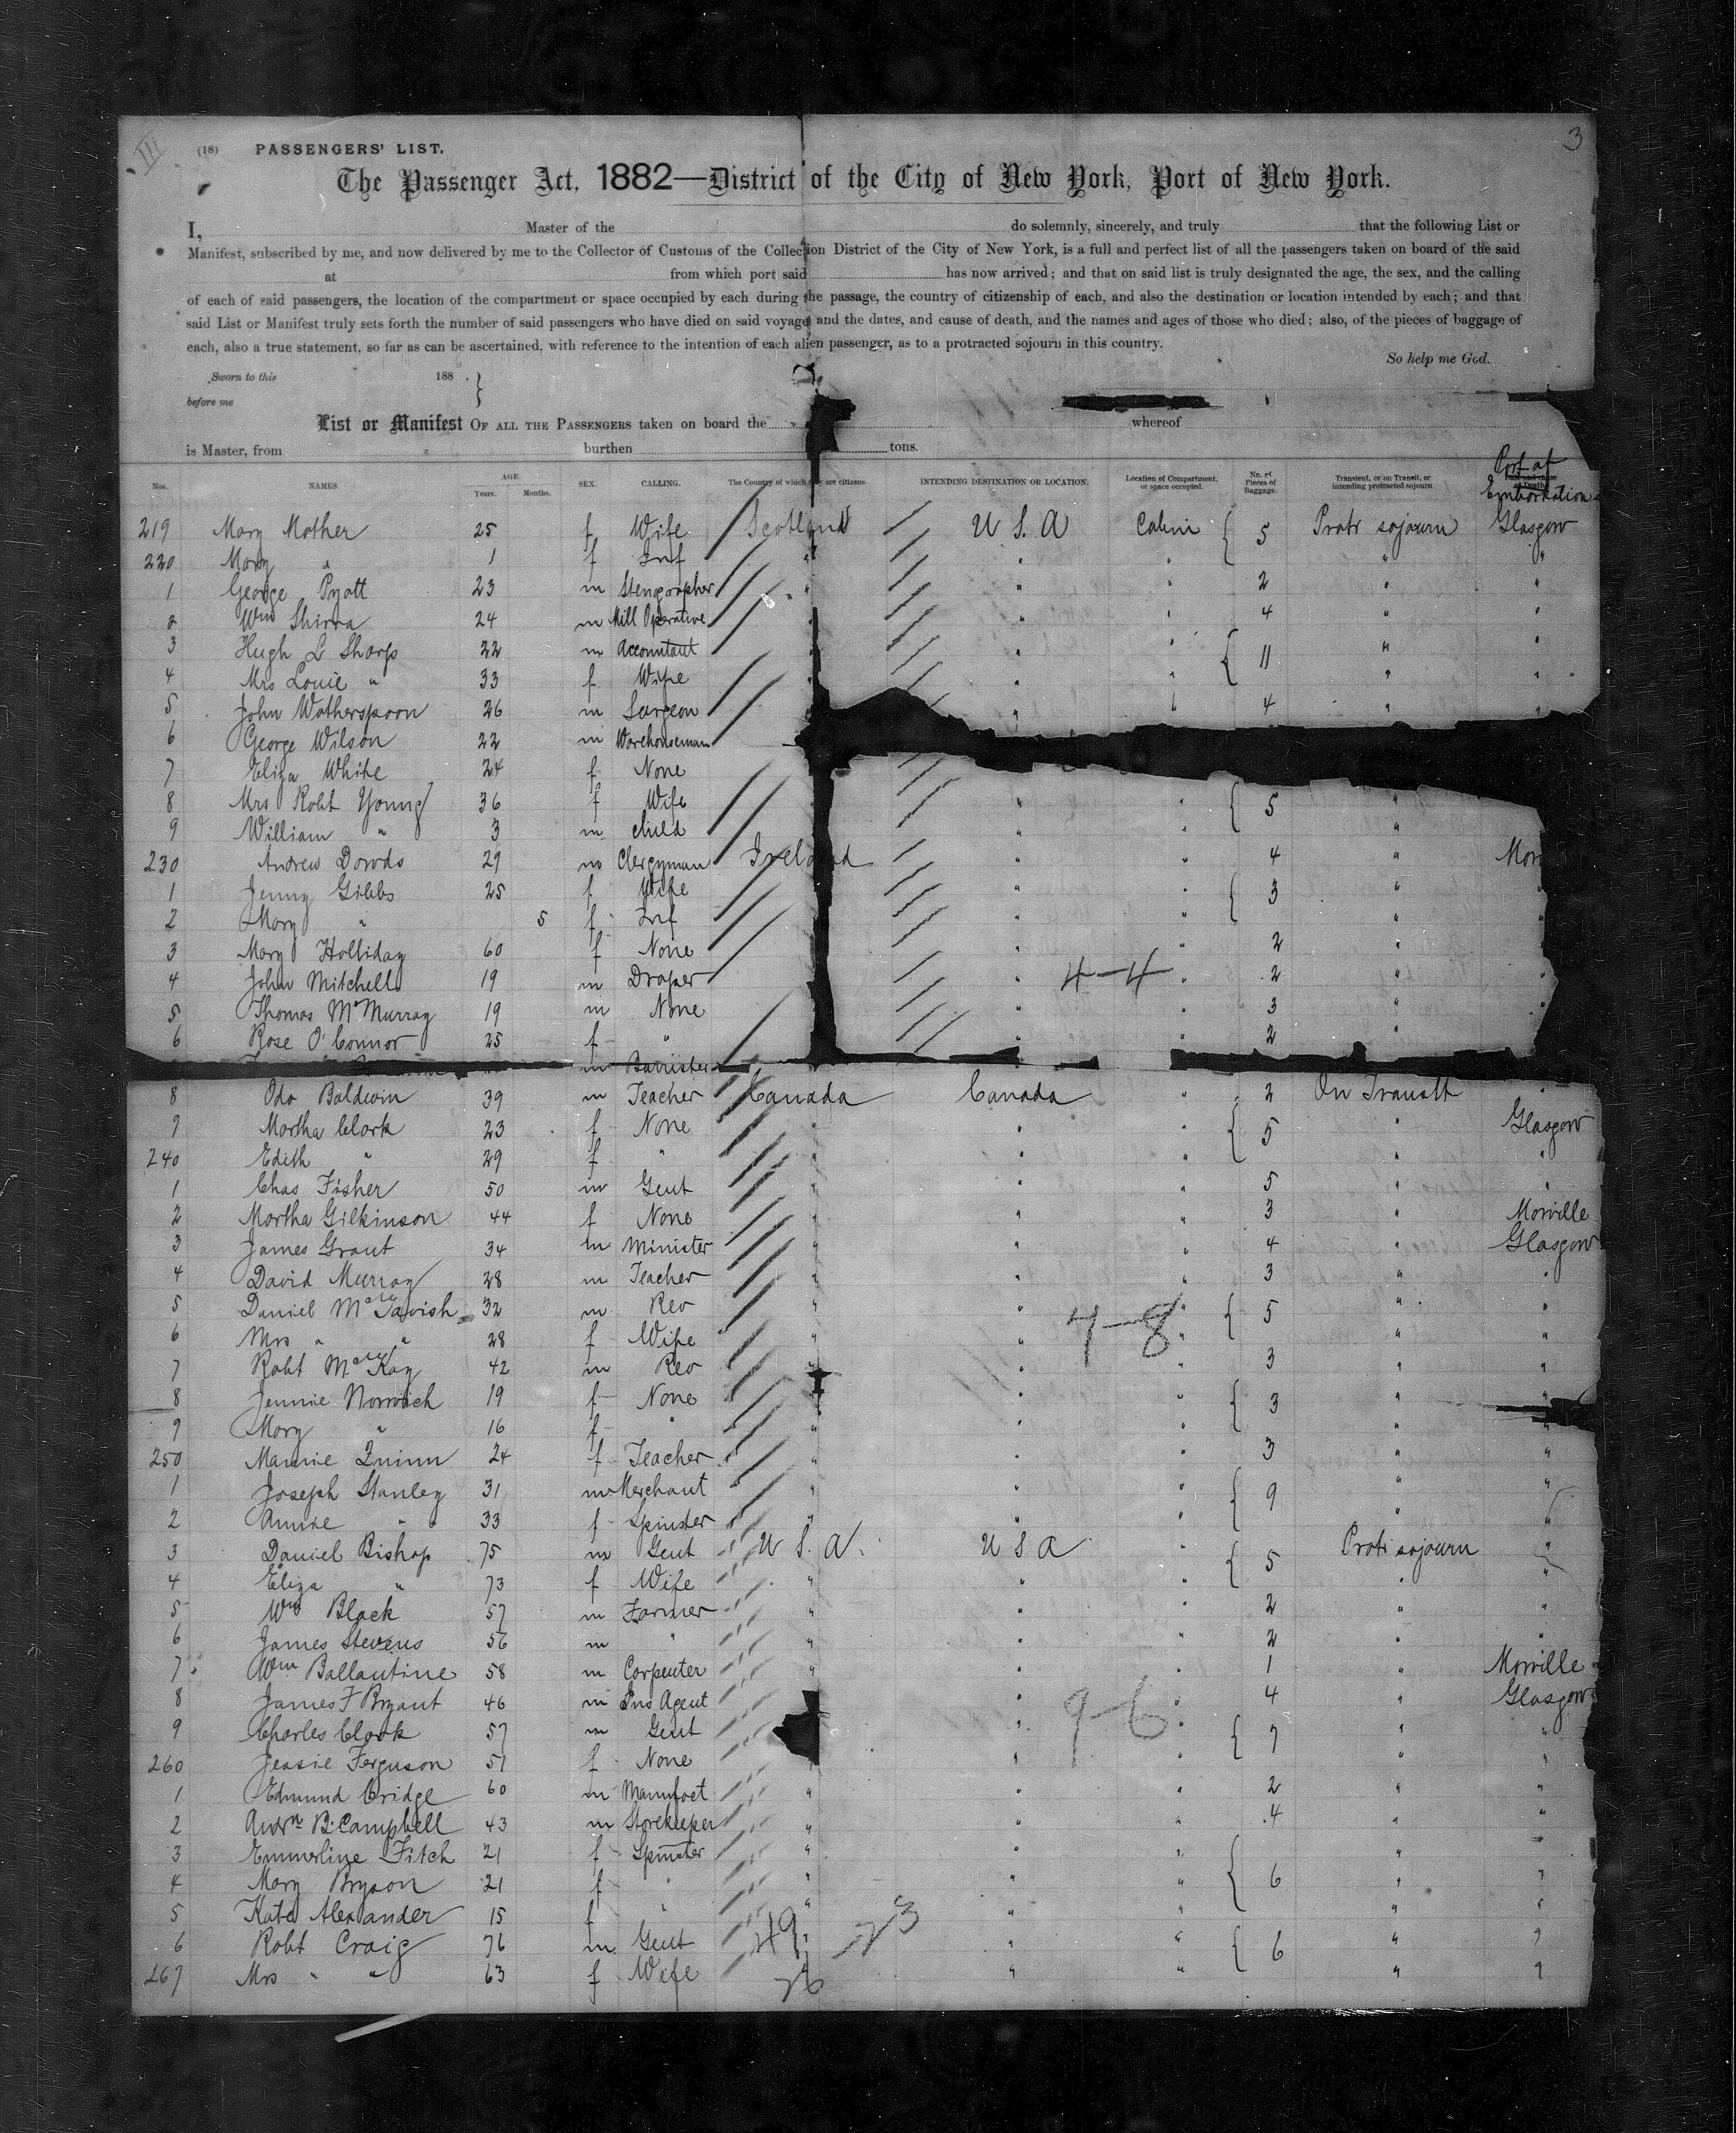 III
3
(18) PASSENGERS' LIST.
The Passenger Act, 1882—District of the City of New York, Port of New York.
I, Master of the do solemnly, sincerely, and truly that the following List or
Manifest, subscribed by me, and now delivered by me to the Collector of Customs of the Collection District of the City of New York, is a full and perfect list of all the passengers taken on board of the said
at from which port said has now arrived; and that on said list is truly designated the age, the sex, and the calling
of each of said passengers, the location of the compartment or space occupied by each during the passage, the country of citizenship of each, and also the destination or location intended by each; and that
said List or Manifest truly sets forth the number of said passengers who have died on said voyage and the dates, and cause of death, and the names and ages of those who died; also, of the pieces of baggage of
each, also a true statement, so far as can be ascertained, with reference to the intention of each alien passenger, as to a protracted sojourn in this country.
So help me God.
Sworn to this 188
before me
List or Manifest OF ALL THE PASSENGERS taken on board the whereof
is Master, from burthen tons.
Nos. NAMES. AGE Years. Months. SEX. CALLING. The Country of which they are citizens. INTENDING DESTINATION OR LOCATION. Location of Compartment, or space occupied. No. of Pieces of Baggage. Transient, or on Transit, or intending protracted sojourn Port of Embarkation
219 Mary Mather 25 f Wife Scotland U S. A Cabin { 5 Protr sojourn Glasgow
220 Mary " 1 f Inf " " " " "
1 George Pyatt 23 m Stenographer " " " 2 " "
2 Wm Shirra 24 m Mill Operative " " 4 " "
3 Hugh L Sharp 22 m Accountant " " { 11 " "
4 Mrs Louie " 33 f Wife " " " "
5 John Wotherspoon 26 m Surgeon " " 4 " "
6 George Wilson 22 m Warehouseman
7 Eliza White 24 f None
8 Mrs Robt Young 36 f Wife " " { 5 "
9 William " 3 m child " " "
230 Andrew Dowds 29 m Clergyman Ireland " " 4 " Mov
1 Jenny Gibbs 25 f Wife " " { 3 "
2 Mary " 5 f Inf " " " "
3 Mary Holliday 60 f None " " 2 " "
4 John Mitchell 19 m Draper " 4-4 " 2 " "
5 Thomas McMurray 19 m None " " 3 " "
6 Rose O'Connor 25 f " " " 2 "
m Barrister
8 Odo Baldwin 39 m Teacher Canada Canada " 2 On Transtt "
9 Martha Clark 23 f None " " " { 5 " Glasgow
240 Edith " 29 f " " " " " "
1 Chas Fisher 50 m Gent " " " 5 " "
2 Martha Gilkinson 44 f None " " " 3 " Moville
3 James Grant 34 m Minister " " " 4 " Glasgow
4 David Murray 28 m Teacher " " " 3 " "
5 Daniel MacTavish 32 m Rev " " 4-8 " { 5 " "
6 Mrs " " 28 f Wife " " " " "
7 Robt MacKay 42 m Rev " " 3 " "
8 Jennie 19 f None " " { 3 " "
9 Mary " 16 f " " " " " "
250 Mamie Quinn 24 f Teacher " " " 3 " "
1 Joseph Stanley 31 m Merchant " " " { 9 " "
2 Annie " 33 f Spinster " " " " "
3 Daniel Bishop 75 m Gent U S. A. U S A " { 5 Protr sojourn "
4 Eliza " 73 f Wife " " " " "
5 Wm Black 57 m Farmer " " " 2 " "
6 James Stevens 56 m " " " " 2 " "
7 Wm Ballantine 58 m Carpenter " " " 1 " Moville
8 James F Bryant 46 m Ins Agent " 9-6 " 4 " Glasgow
9 Charles Clark 57 m Gent " " { 7 " "
260 Jessie Ferguson 51 f None " " " " "
1 Edmund Cridge 60 m Manufact. " " " 2 " "
2 Andrw B. Campbell 43 m Storekeeper " " " 4 " "
3 Emmerline Fitch 21 f Spinster " " " { 6 " "
4 Mary Bryson 21 f " " " " " "
5 Kate Alexander 15 f " " " " " "
6 Robt Craig 76 m Gent 49 23 " " { 6 " "
267 Mrs " " 63 f Wife 26 " " " "